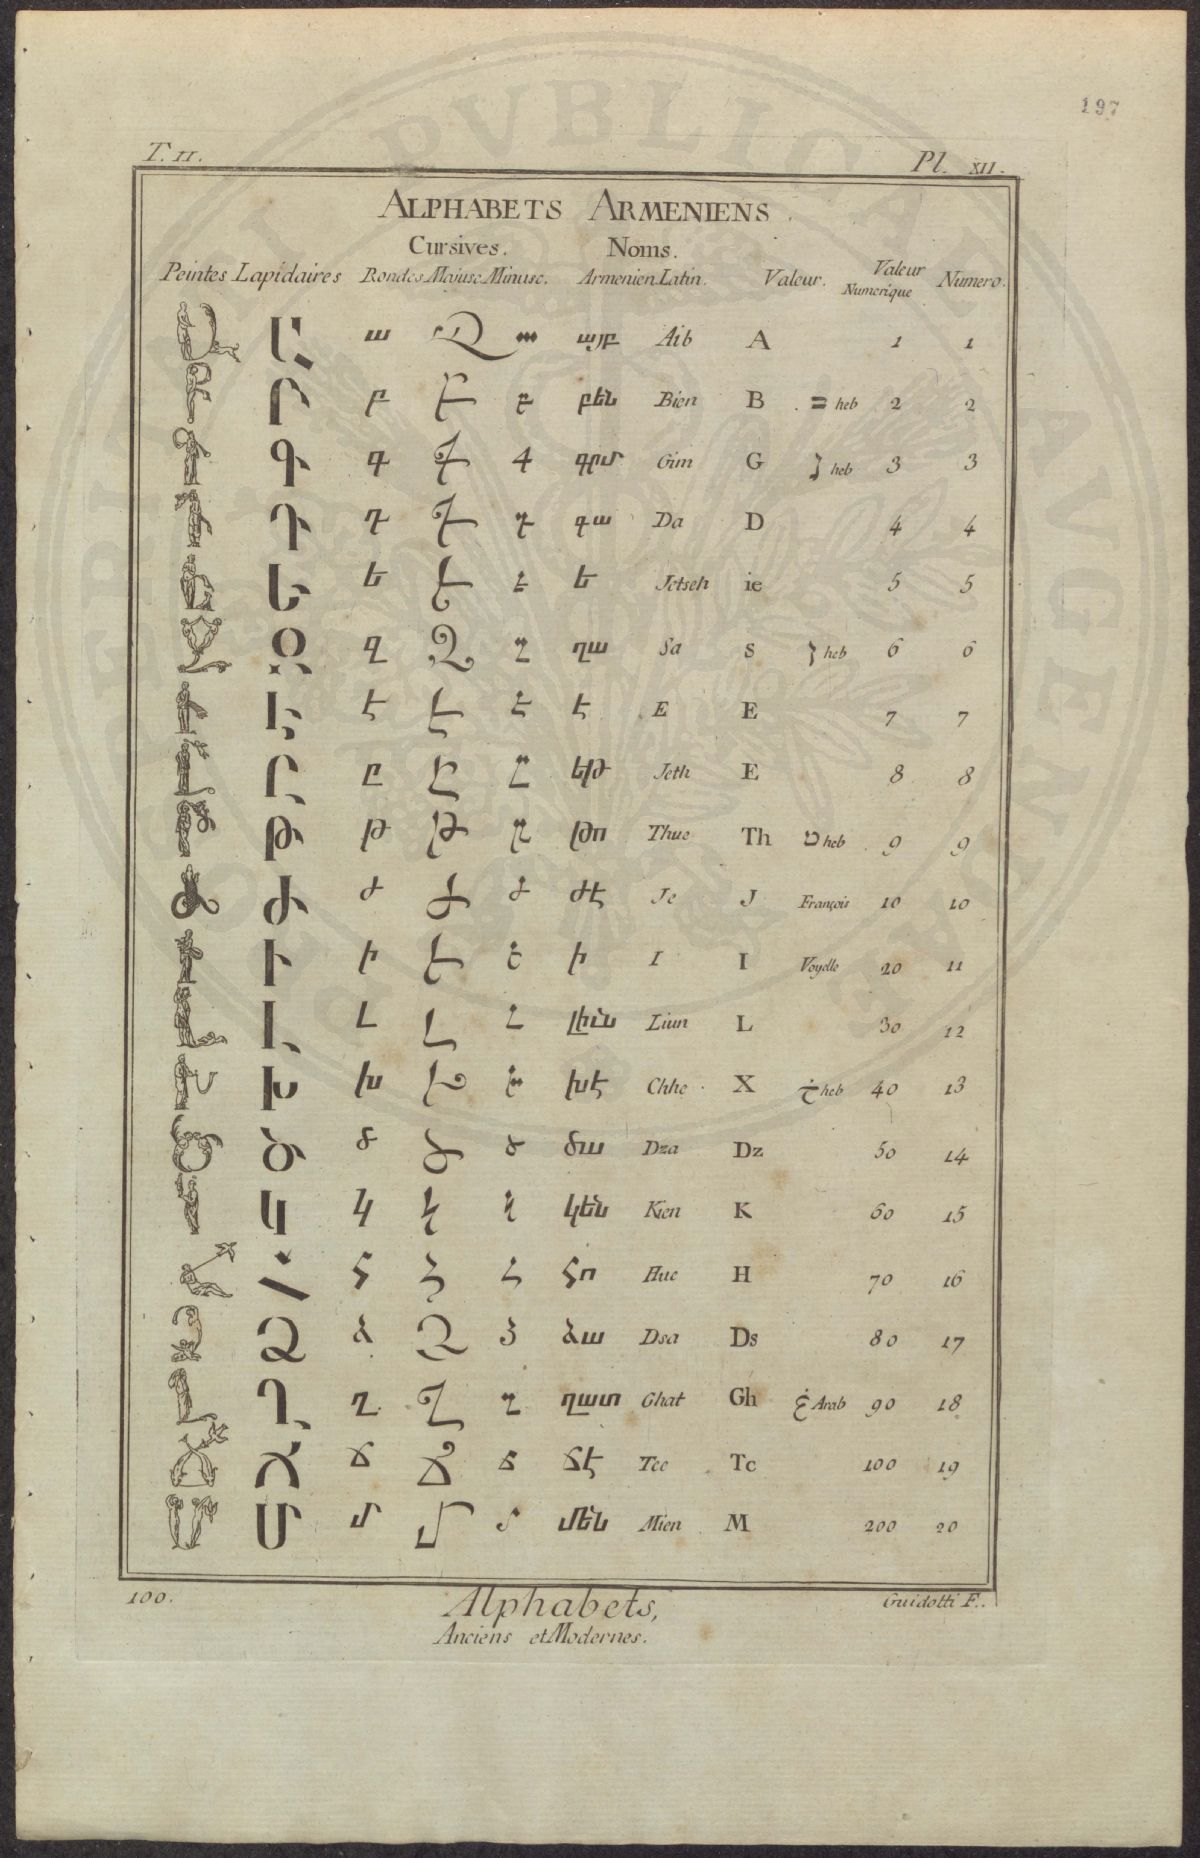 197
T. II.
Pl. XII.
ALPHABETS ARMENIENS
Cursives. Noms.
Peintes Lapidaires Rondes Majusc Minusc. Armenien Latin. Valeur. Valeur Numerique Numero.
Ա ա այբ Aib A 1 1
Բ բ բեն Bien B ב heb 2 2
Գ գ Gim G heb 3 3
Դ դ գա Da D 4 4
Ե ե ե Jetseh ie 5 5
Զ զ ղա Sa S heb 6 6
Է է է E E 7 7
Ը ը եթ Jeth E 8 8
Թ թ թո Thue Th ט heb 9 9
Ժ ժ ժէ Je J François 10 10
Ի ի ի I I Voyelle 20 11
Լ լ լիւն Liun L 30 12
Խ խ խէ Chhe X heb 40 13
Ծ ծ ծա Dza Dz 50 14
Կ կ կեն Kien K 60 15
Հ հ հո Hue H 70 16
Ձ ձ ձա Dsa Ds 80 17
Ղ ղ ղատ Ghat Gh غ Arab 90 18
Ճ ճ ճէ Tce Tc 100 19
Մ մ մեն Mien M 200 20
100.
Alphabets,
Guidotti F.
Anciens et Modernes.